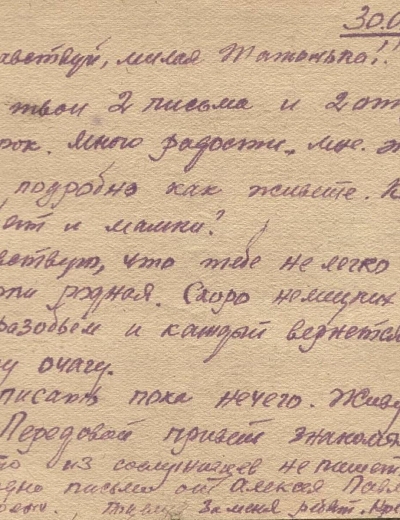 30.0
авствуй, милая Татонька!!
твои 2 письма и 2 от
ок. Много радости. мне.
подробно как живете. К
ет и мамки?
вствую, что тебе не легко
родная. Скоро немецких
разобьем и каждый вернется
у очагу.
писать пока нечего. Живу
Передовой привет знаком
то из сослуживцев не пишет
одно письмо от Алексея Павл
за меня